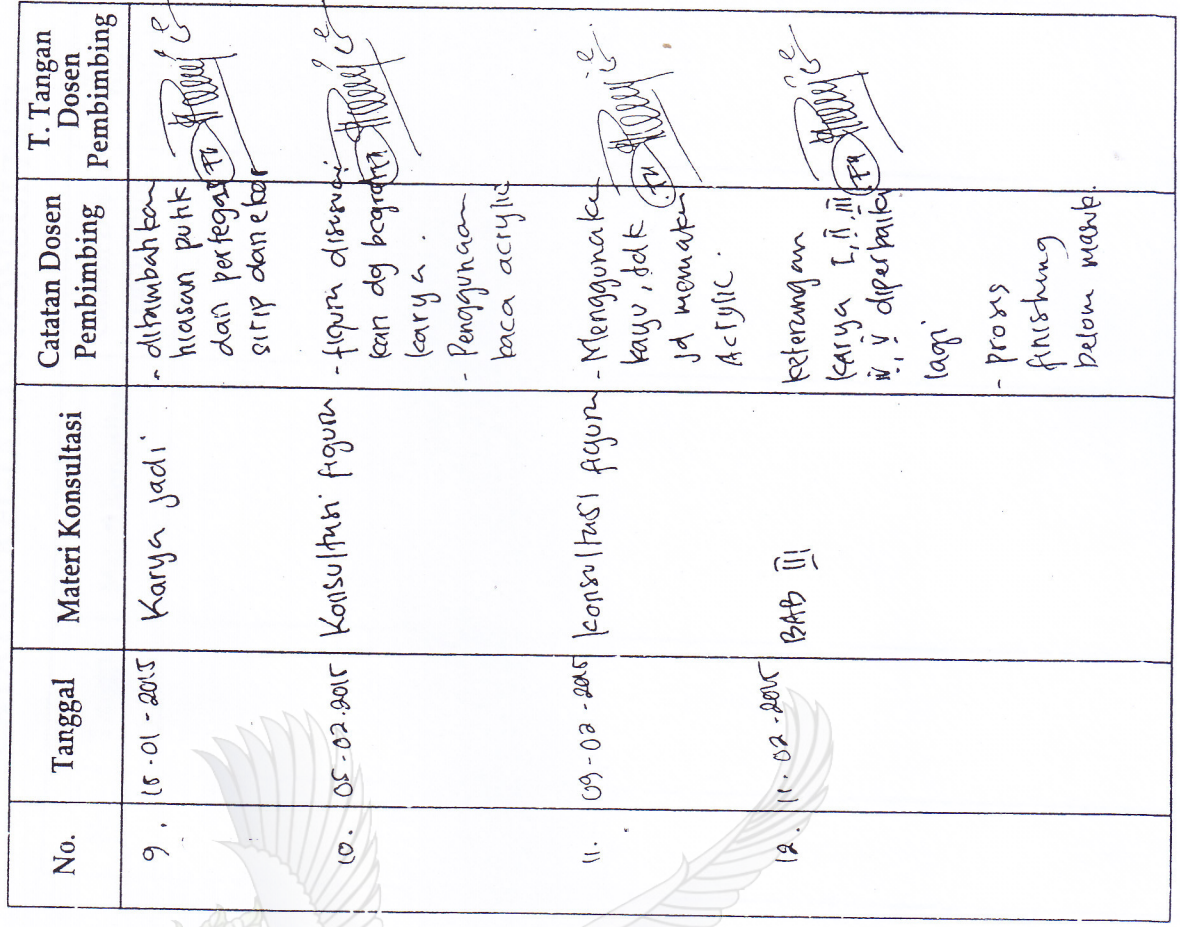 No.
Tanggal
Materi Konsultasi
Catatan Dosen
Pembimbing
T. Tangan
Dosen
Pembimbing
9.
15-01-2015
Karya jadi
- ditambahkan
hiasan putik
dan pertegas
sirip dan ekor
10.
05-02-2015
Konsultasi figura
- figura disesuai
kan dg
karya.
- Penggunaan
kaca acrylic
11.
09-02-2015
konsultasi figura
- Menggunakan
kayu, tdk
jd memakai
Acrylic.
12.
11-02-2015
BAB III
keterangan
karya I, II, III
IV, V diperbaiki
lagi
- proses
finishing
belom masuk.